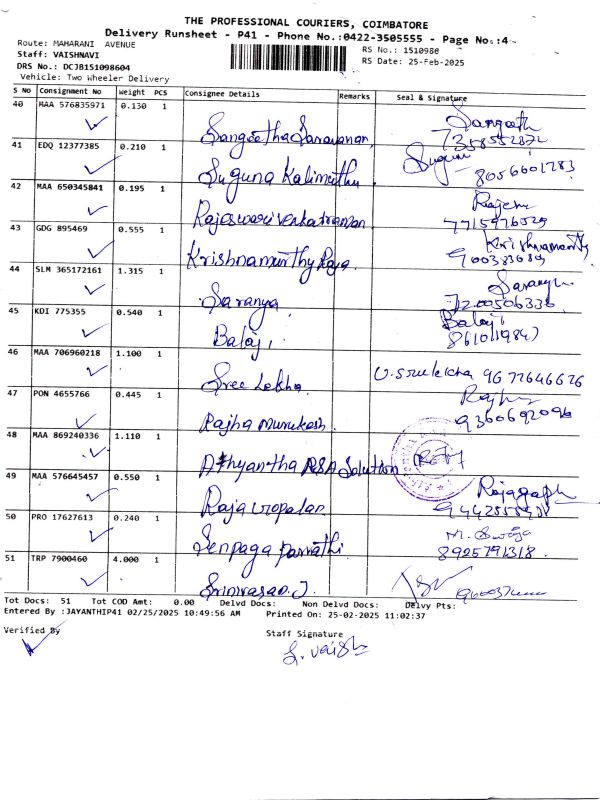 THE PROFESSIONAL COURIERS, COIMBATORE
Delivery Runsheet - P41 - Phone No.:0422-3505555 - Page No.:4
Route: MAHARANI AVENUE
Staff: VAISHNAVI
RS No.: 1510980
DRS No.: DCJB151098604
RS Date: 25-Feb-2025
Vehicle: Two Wheeler Delivery
S No Consignment No Weight PCS Consignee Details Remarks Seal & Signature
40 MAA 576835971 0.130 1 Sangeetha Saravanan Sangeeth
41 EDQ 12377385 0.210 1 Suguna Kalimuthu Suguna 8056601283
42 MAA 650345841 0.195 1 Rajeswari venkatraman
43 GDG 895469 0.555 1 Krishnamurthy Raja. Krishnamurthy
44 SLM 365172161 1.315 1 Saranya 7200506336
45 KDI 775355 0.540 1 Balaji Balaji
46 MAA 706960218 1.100 1 Sree Lekha 9677646676
47 PON 4655766 0.445 1 Rajha Murukesh 9360692096
48 MAA 869240336 1.110 1 Athyantha RSA Solution
49 MAA 576645457 0.550 1 Raja Gopalan Rajagopal
50 PRO 17627613 0.240 1 Senpaga Parvathi 8925791318.
51 TRP 7900460 4.000 1 Srinivasan.J.
Tot Docs: 51 Tot COD Amt: 0.00 Delvd Docs: Non Delvd Docs: Delvy Pts:
Entered By :JAYANTHIP41 02/25/2025 10:49:56 AM Printed On: 25-02-2025 11:02:37
Verified By Staff Signature
S. Vaish